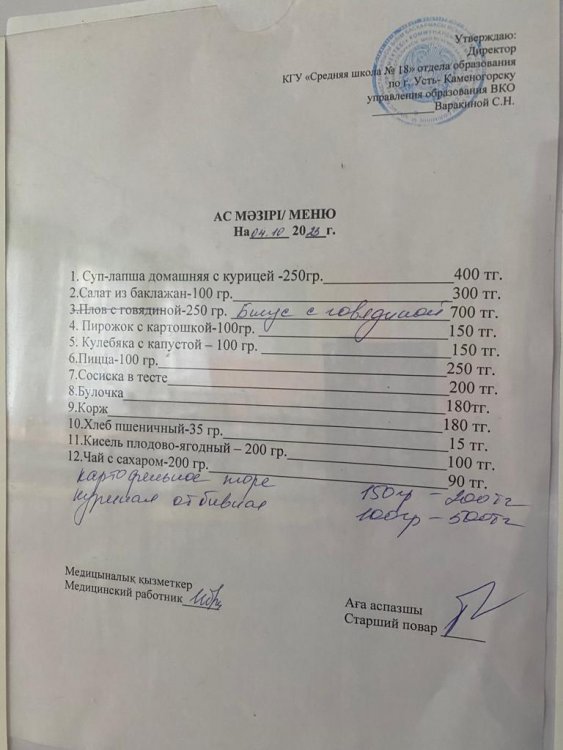 Утверждаю:
Директор
КГУ «Средняя школа № 18» отдела образования
по г. Усть- Каменогорску
управления образования ВКО
__________Варакиной С.Н.
АС МӘЗІРІ/ МЕНЮ
На 04.10 2023г.
1. Суп-лапша домашняя с курицей -250гр. 400 тг.
2.Салат из баклажан-100 гр. 300 тг.
3.Плов с говядиной-250 гр. Бигус с говядиной 700 тг.
4. Пирожок с картошкой-100гр. 150 тг.
5. Кулебяка с капустой – 100 гр. 150 тг.
6.Пицца-100 гр. 250 тг.
7.Сосиска в тесте 200 тг.
8.Булочка 180тг.
9.Корж 180 тг.
10.Хлеб пшеничный-35 гр. 15 тг.
11.Кисель плодово-ягодный – 200 гр. 100 тг.
12.Чай с сахаром-200 гр. 90 тг.
картофельное пюре 150гр – 200тг
куриная отбивная 100гр – 500тг
Медициналық қызметкер
Медицинский работник
Аға аспазшы
Старший повар